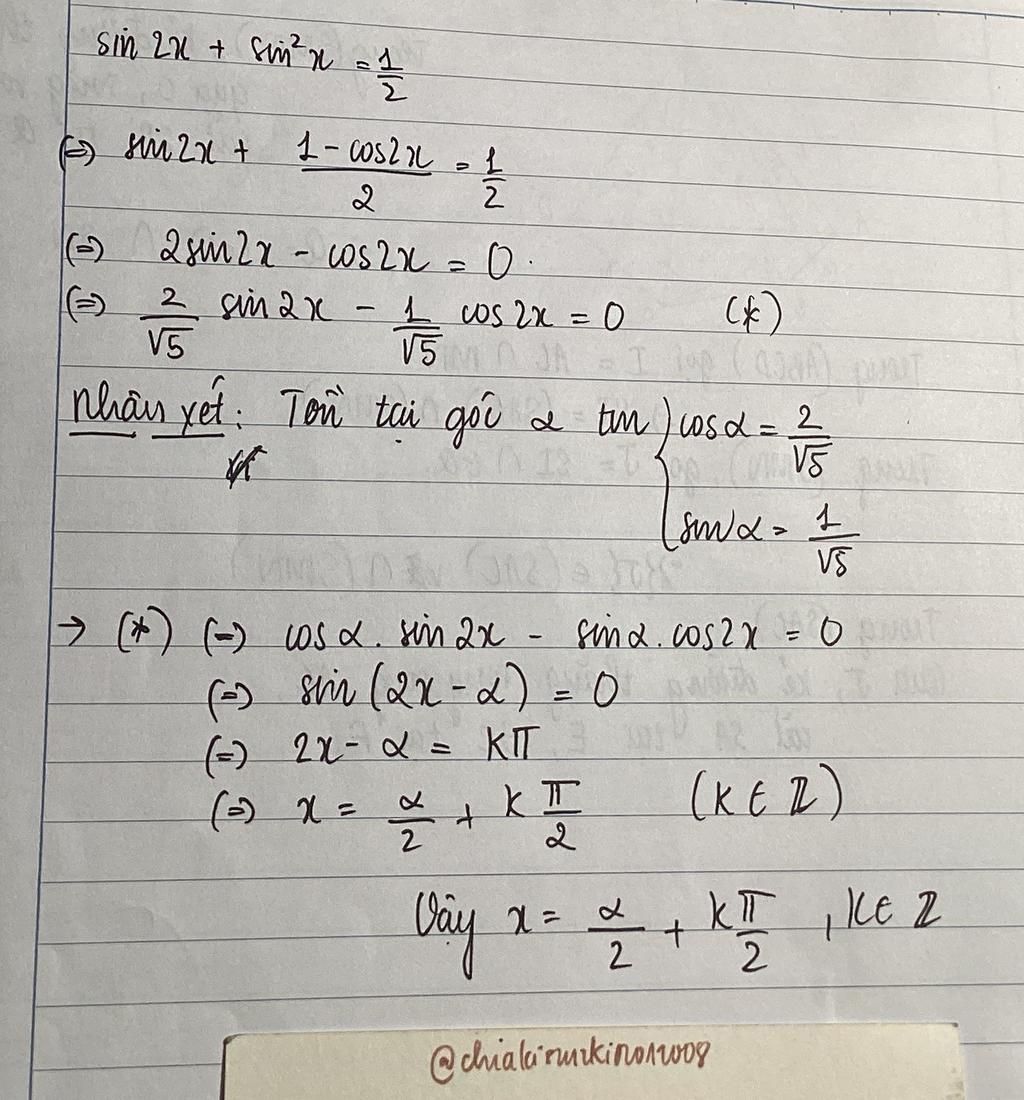 sin 2x + sin²x = 1/2
(=) sin2x + (1 - cos2x)/2 = 1/2
(=) 2sin2x - cos2x = 0.
(=) 2/√5 sin 2x - 1/√5 cos 2x = 0 (*)
Nhận xét: Tồn tại góc α tm { cosα = 2/√5
sinα = 1/√5
→ (*) (=) cosα. sin2x - sinα. cos2x = 0
(=) sin(2x - α) = 0
(=) 2x - α = kπ
(=) x = α/2 + k π/2 (k ∈ ℤ)
Vậy x = α/2 + kπ/2 , k ∈ ℤ